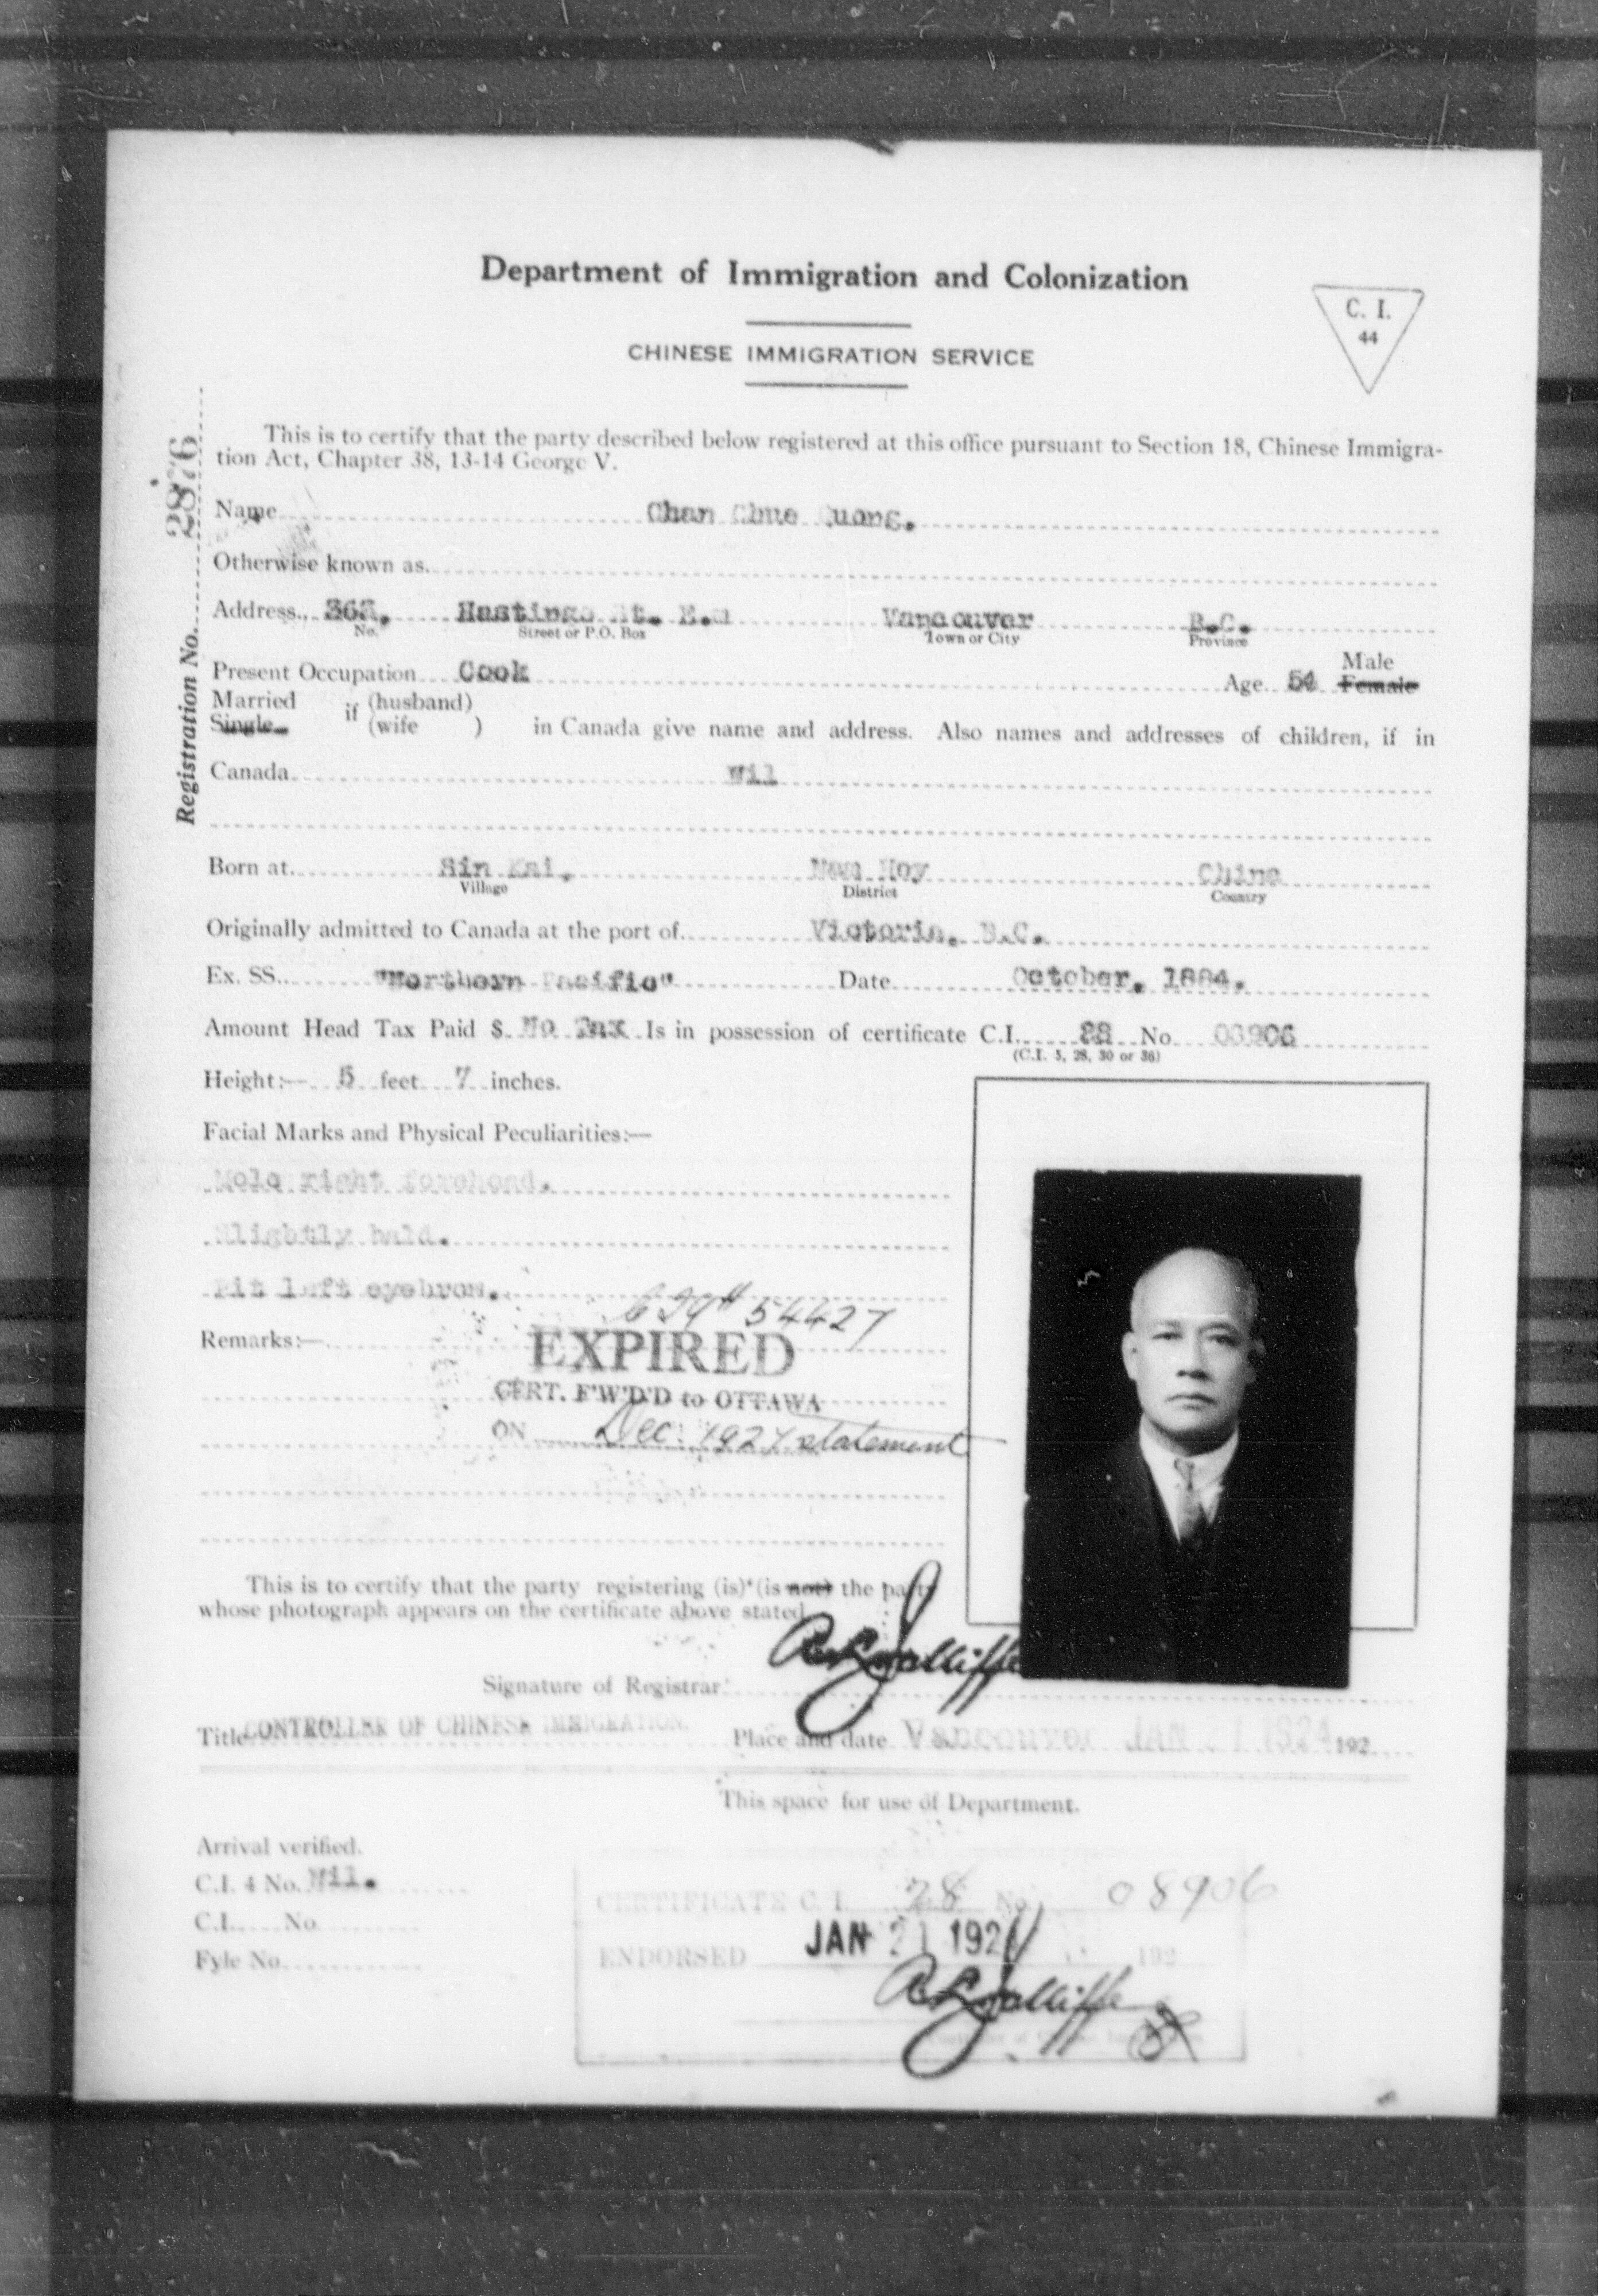 Department of Immigration and Colonization
C. I.
44
CHINESE IMMIGRATION SERVICE
Registration No. 2876
This is to certify that the party described below registered at this office pursuant to Section 18, Chinese Immigra-
tion Act, Chapter 38, 13-14 George V.
Name Chan Chue Quong.
Otherwise known as
Address 363, Hastings St. E. Vancouver B.C.
No. Street or P.O. Box Town or City Province
Present Occupation Cook Age 54 Male Female
Married (husband)
Single if (wife ) in Canada give name and address. Also names and addresses of children, if in
Canada Nil
Born at Sin Kai, Nam Hoy China
Village District Country
Originally admitted to Canada at the port of Victoria, B.C.
Ex. SS. "Northern Pacific" Date October, 1884.
Amount Head Tax Paid $ No Tax Is in possession of certificate C.I. 28 No 08906
(C.I. 5, 28, 30 or 36)
Height:— 5 feet 7 inches.
Facial Marks and Physical Peculiarities:—
Mole right forehead.
Slightly bald.
Pit left eyebrow.
54427
Remarks:—
EXPIRED
CERT. F'W'D'D to OTTAWA
ON Dec. 1927 statement
This is to certify that the party registering (is) (is not) the party
whose photograph appears on the certificate above stated
Signature of Registrar
Title CONTROLLER OF CHINESE IMMIGRATION. Place and date Vancouver JAN 21 1924 192
This space for use of Department.
Arrival verified.
C.I. 4 No. Nil.
C.I. No
Fyle No.
CERTIFICATE C. I. 28 No. 08906
ENDORSED JAN 21 1924 192